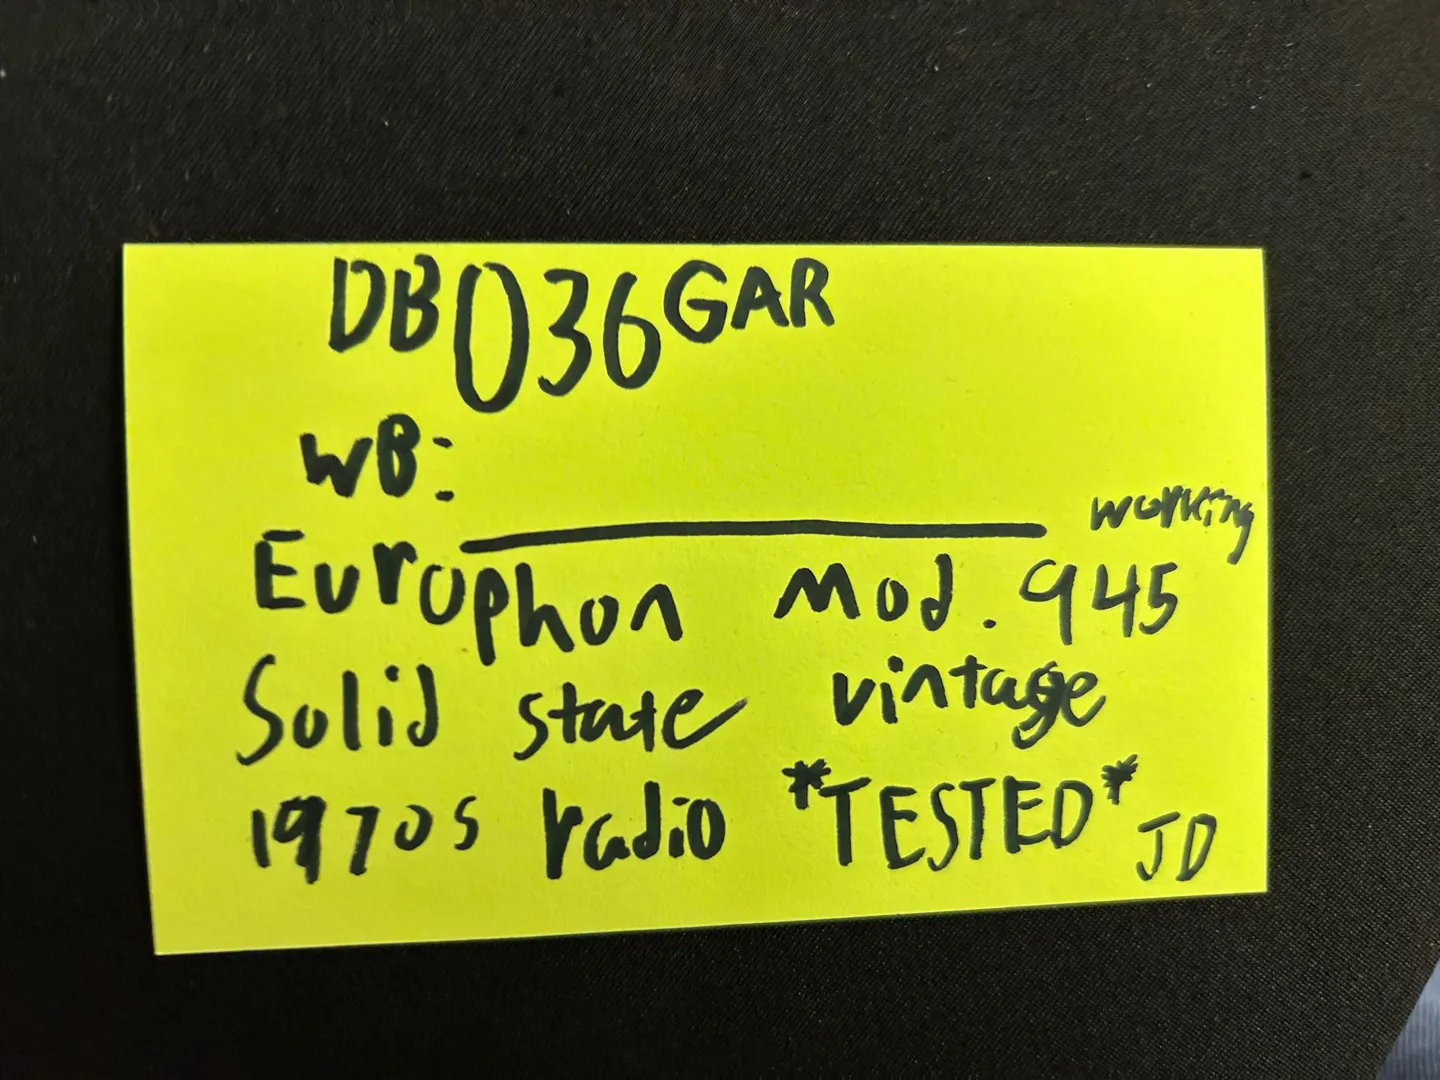 DB036GAR
WB:
working
Europhon Mod. 945
Solid state vintage
1970s radio *TESTED* JD